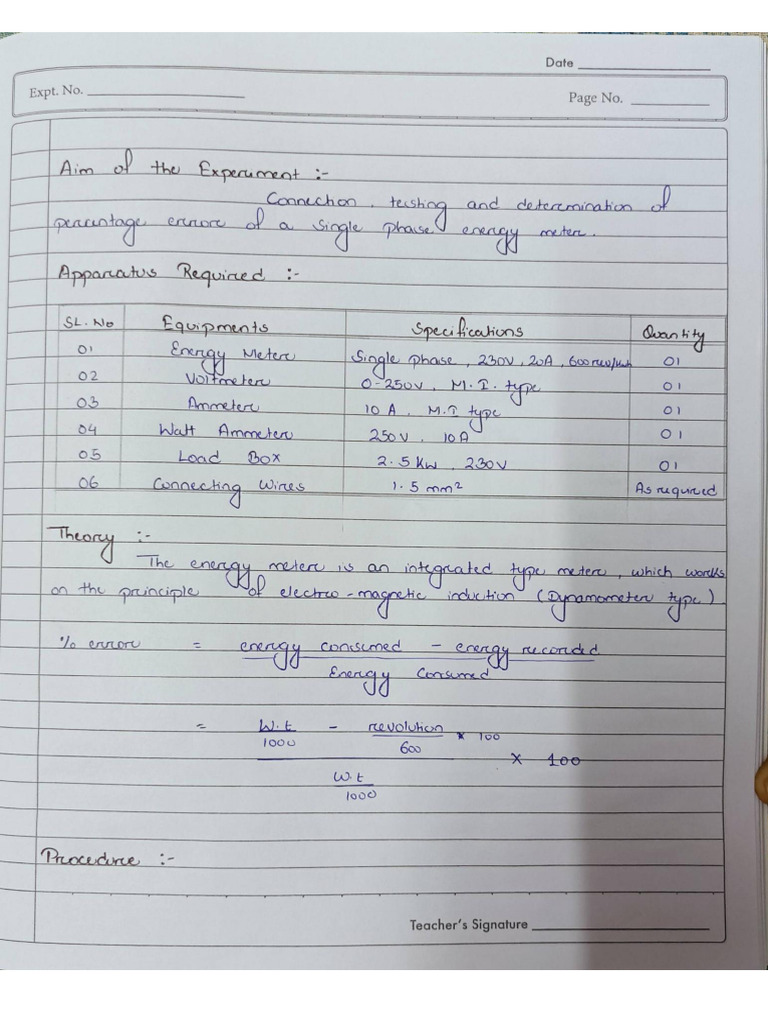 Date
Expt. No.
Page No.
Aim of the Experiment :-
Connection, testing and determination of
percentage error of a single phase energy meter.
Apparatus Required :-
SL. No Equipments Specifications Quantity
01 Energy Meter Single phase, 230V, 20A, 600 rev/kwh 01
02 Voltmeter 0-250V, M.I. type 01
03 Ammeter 10 A, M.I type 01
04 Watt Ammeter 250V, 10A 01
05 Load Box 2.5 Kw, 230V 01
06 Connecting Wires 1.5 mm² As required
Theory :-
The energy meter is an integrated type meter, which works
on the principle of electro-magnetic induction (Dynamometer type)
% error = energy consumed - energy recorded
Energy Consumed
= W.t - revolution × 100
1000 600
× 100
W.t
1000
Procedure :-
Teacher's Signature